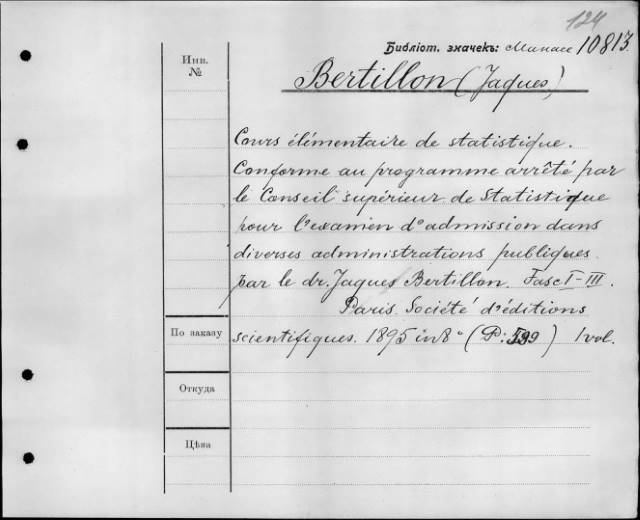 124
Библіот. значекъ: 10813
Инв.
№
Bertillon (Jaques)
Cours élémentaire de statistique.
Conforme au programme arrêté par
le Conseil supérieur de Statistique
pour l'examen d'admission dans
diverses administrations publiques
par le dr. Jaques Bertillon. Fasc I-III.
Paris. Société d'éditions
По заказу
scientifiques. 1895 in 8° (P: 599) 1 vol.
Откуда
Цѣна